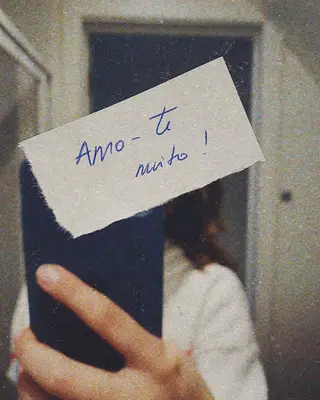 Amo-te
muito!